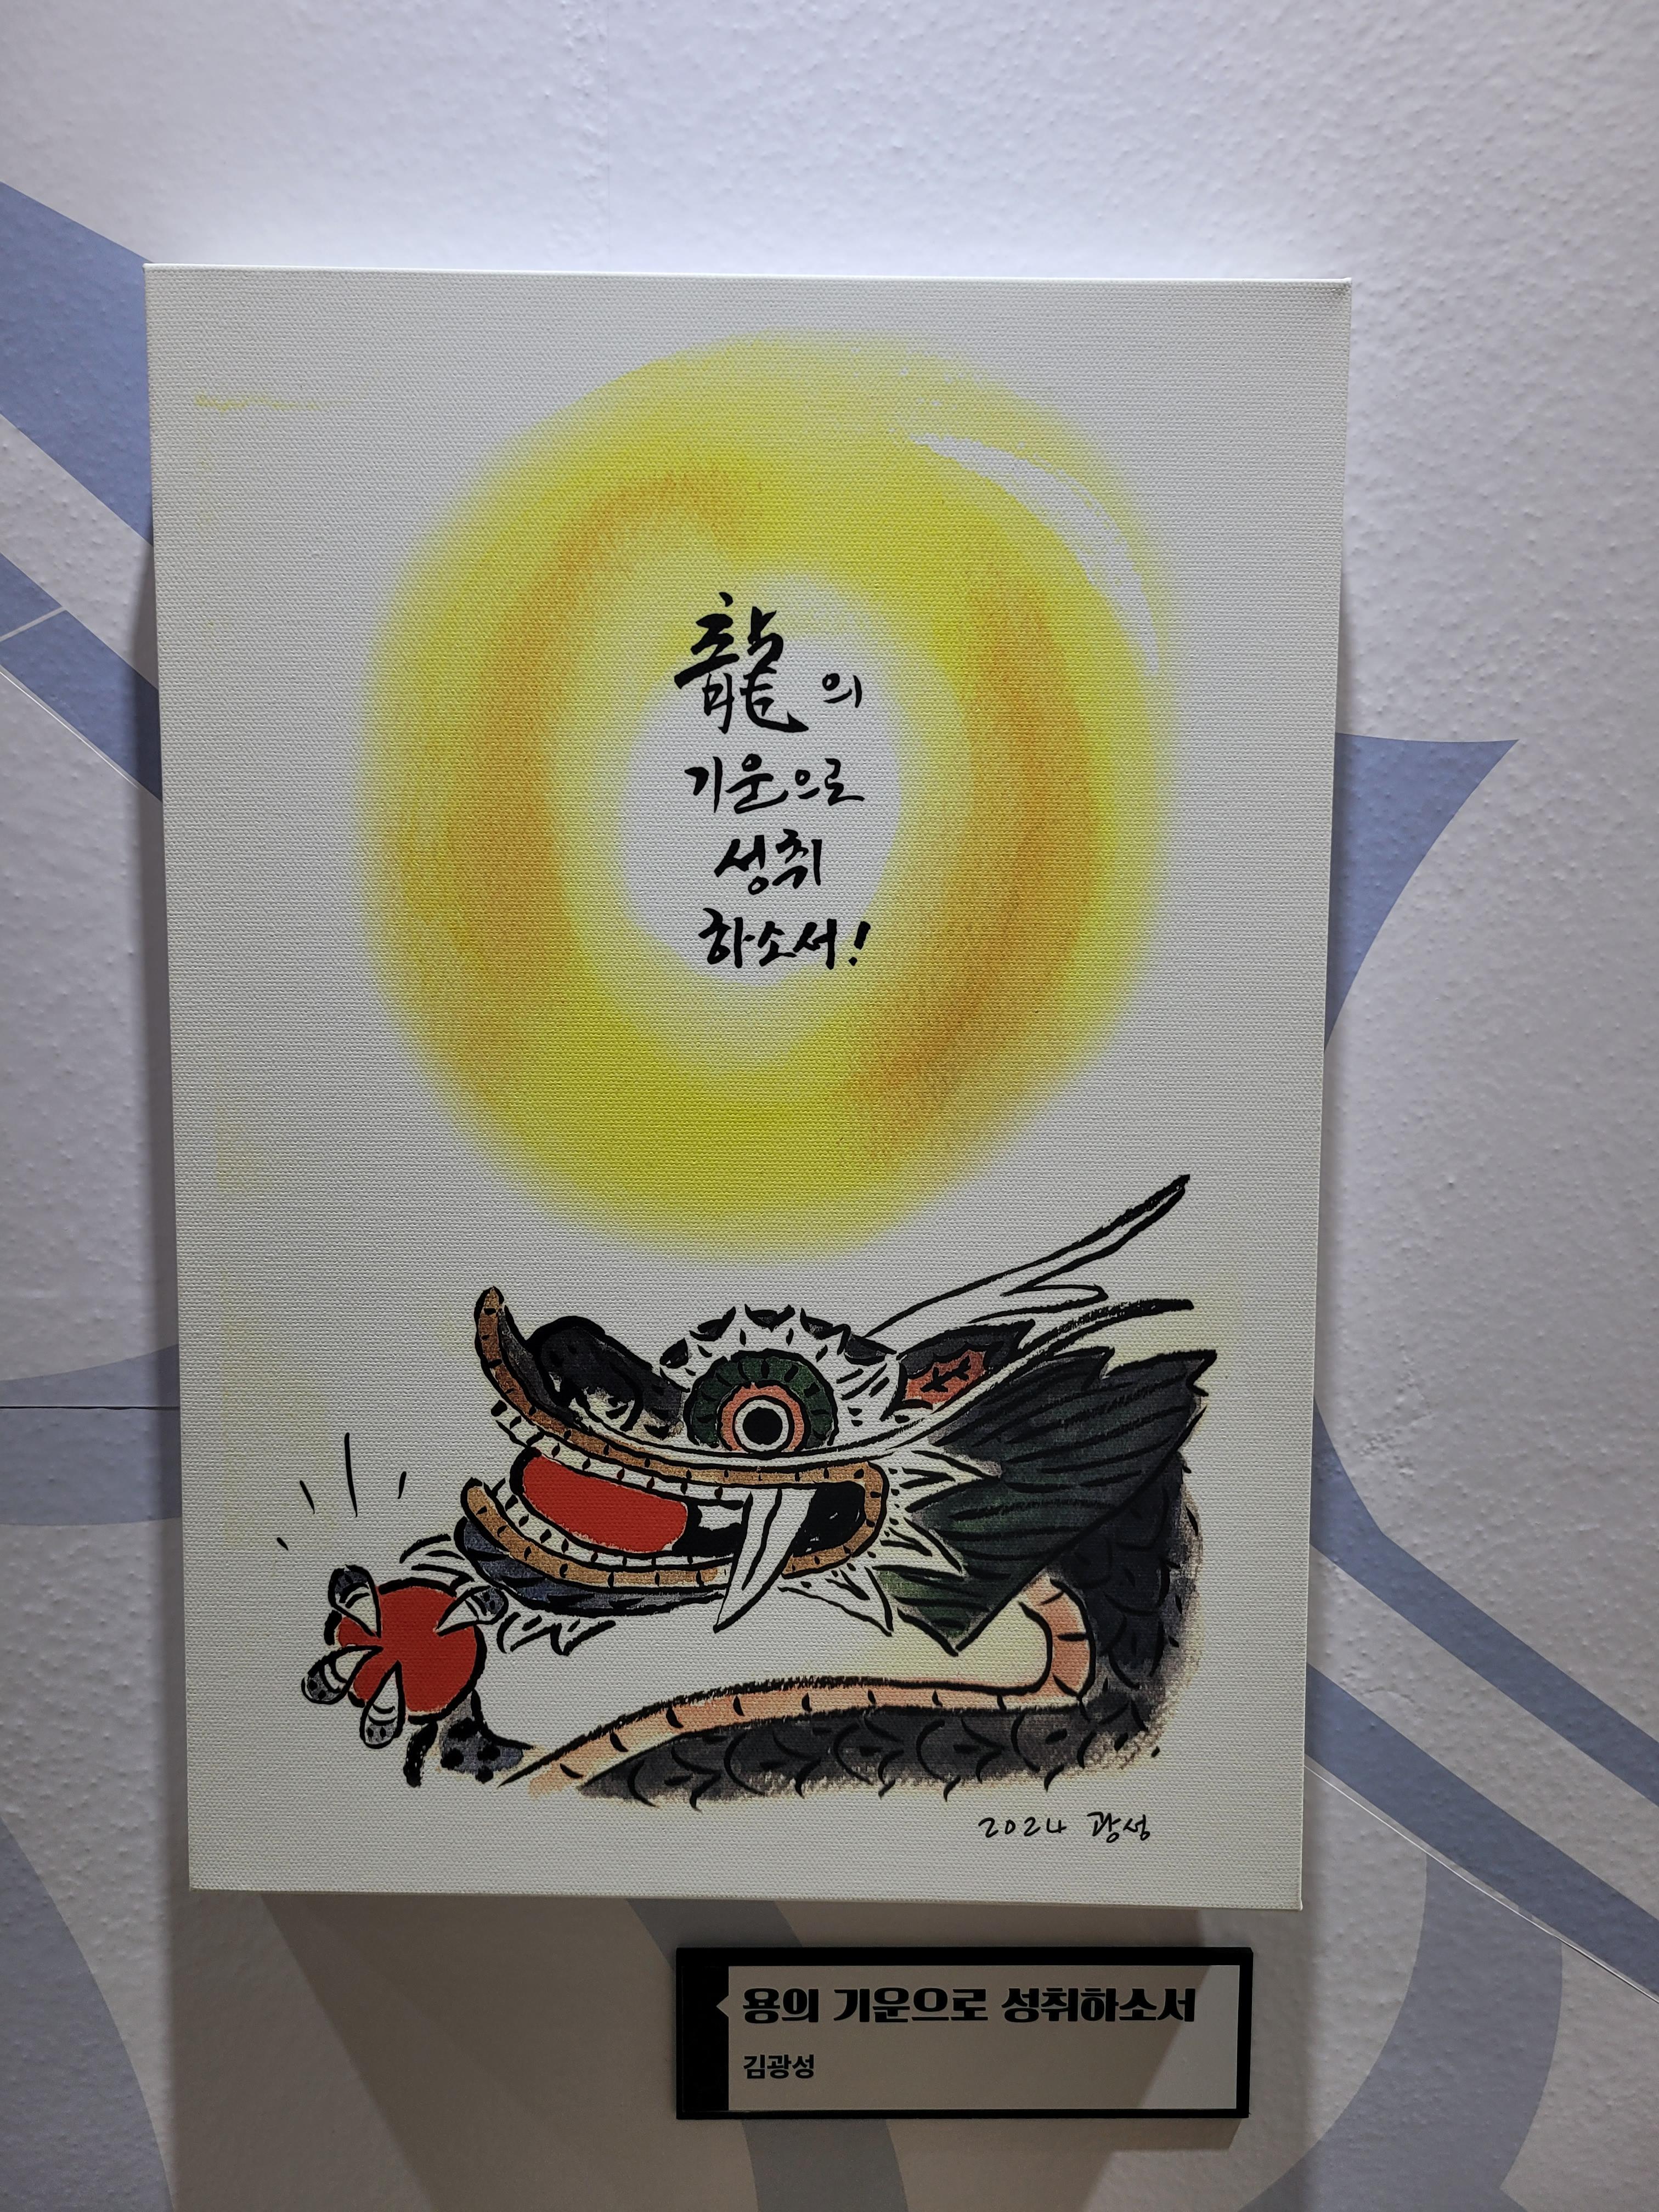 龍의
기운으로
성취
하소서!
2024 광성
용의 기운으로 성취하소서
김광성